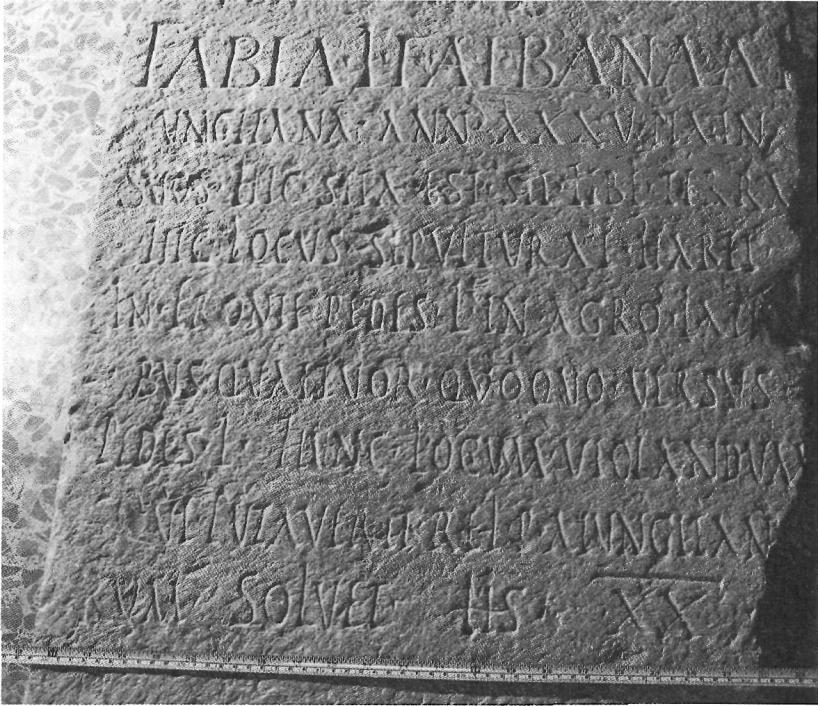 FABIA·L·F·ALBANA·A I
VNGITANA·ANN·XXXV·PIA·IN
SVIS·HIC·SITA·EST·SIT·TIBI·TERRA
HIC·LOCVS·SEPVLTVRAE·HABET
IN·FRONTE PEDES·L·IN AGRO·LATE
BVS·QVATTVOR·QVOQVO·VERSVS
PEDES·L· HVNC·LOCVM·VIOLANDVM
REI·P AIVNGITAN
SOLVET HS XX